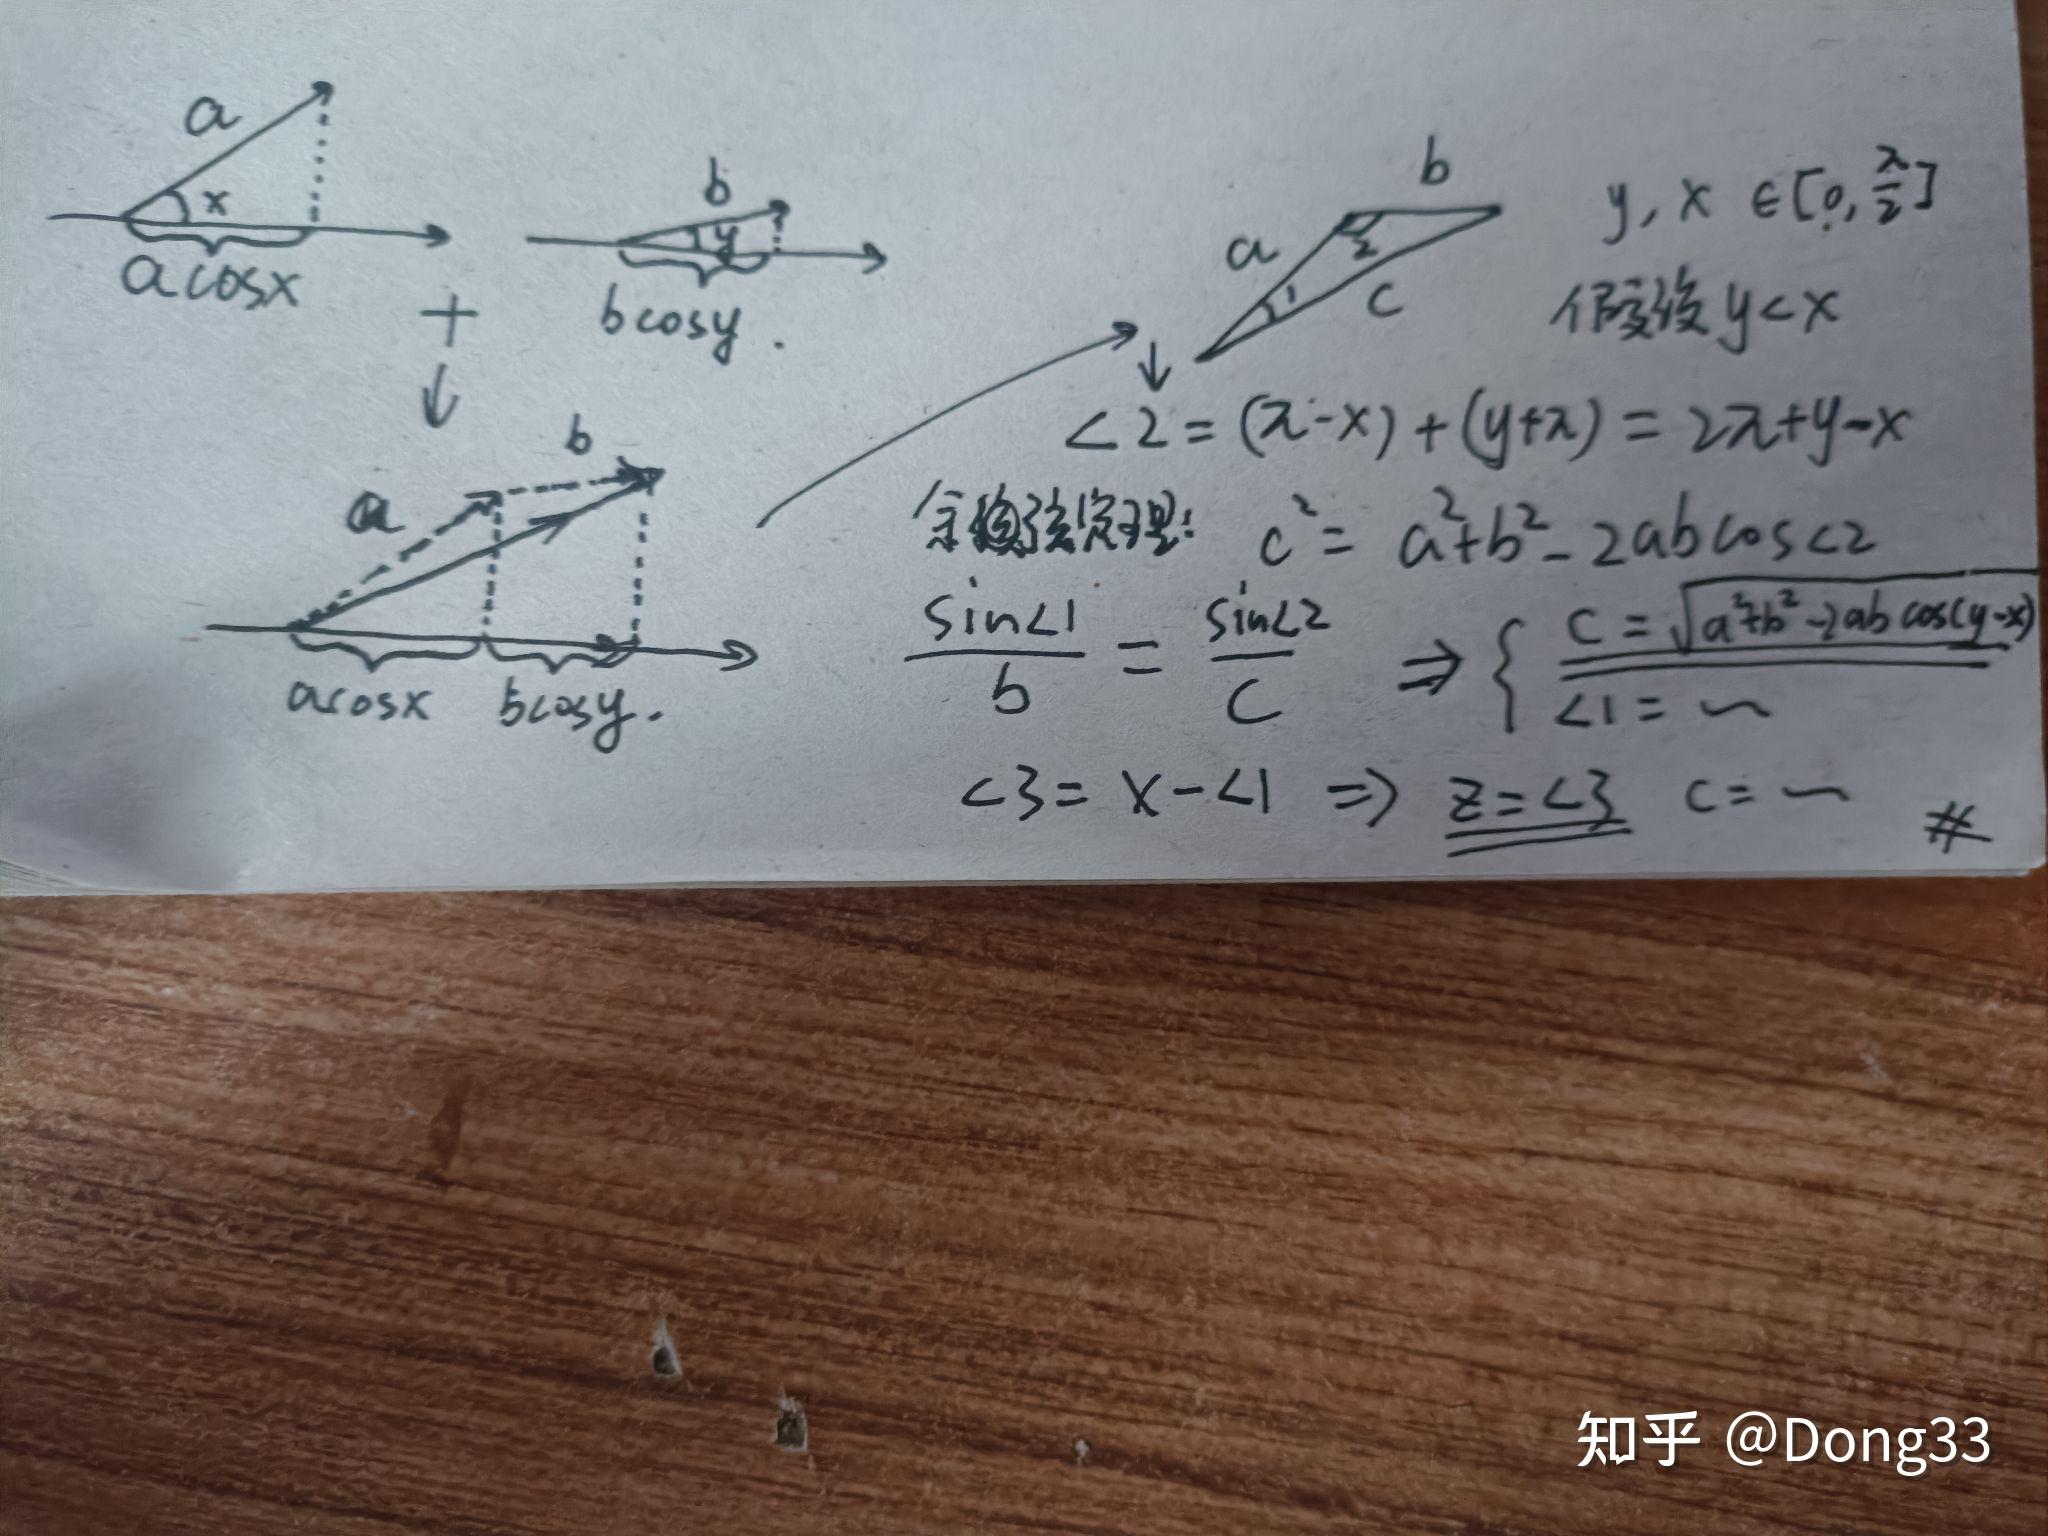 a
x
acosx
+
b
y
bcosy.
↓
a
b
acosx bcosy.
b
a
2
1
c
y, x ∈[0, π/2]
假设 y<x
↓
∠2 = (π-x) + (y+π) = 2π+y-x
余弦定理: c² = a²+b²-2abcos∠2
sin∠1/b = sin∠2/c ⇒ { c = √(a²+b²-2abcos(y-x))
∠1= ~
∠3 = x-∠1 ⇒ z=∠3 c= ~ #
知乎 @Dong33